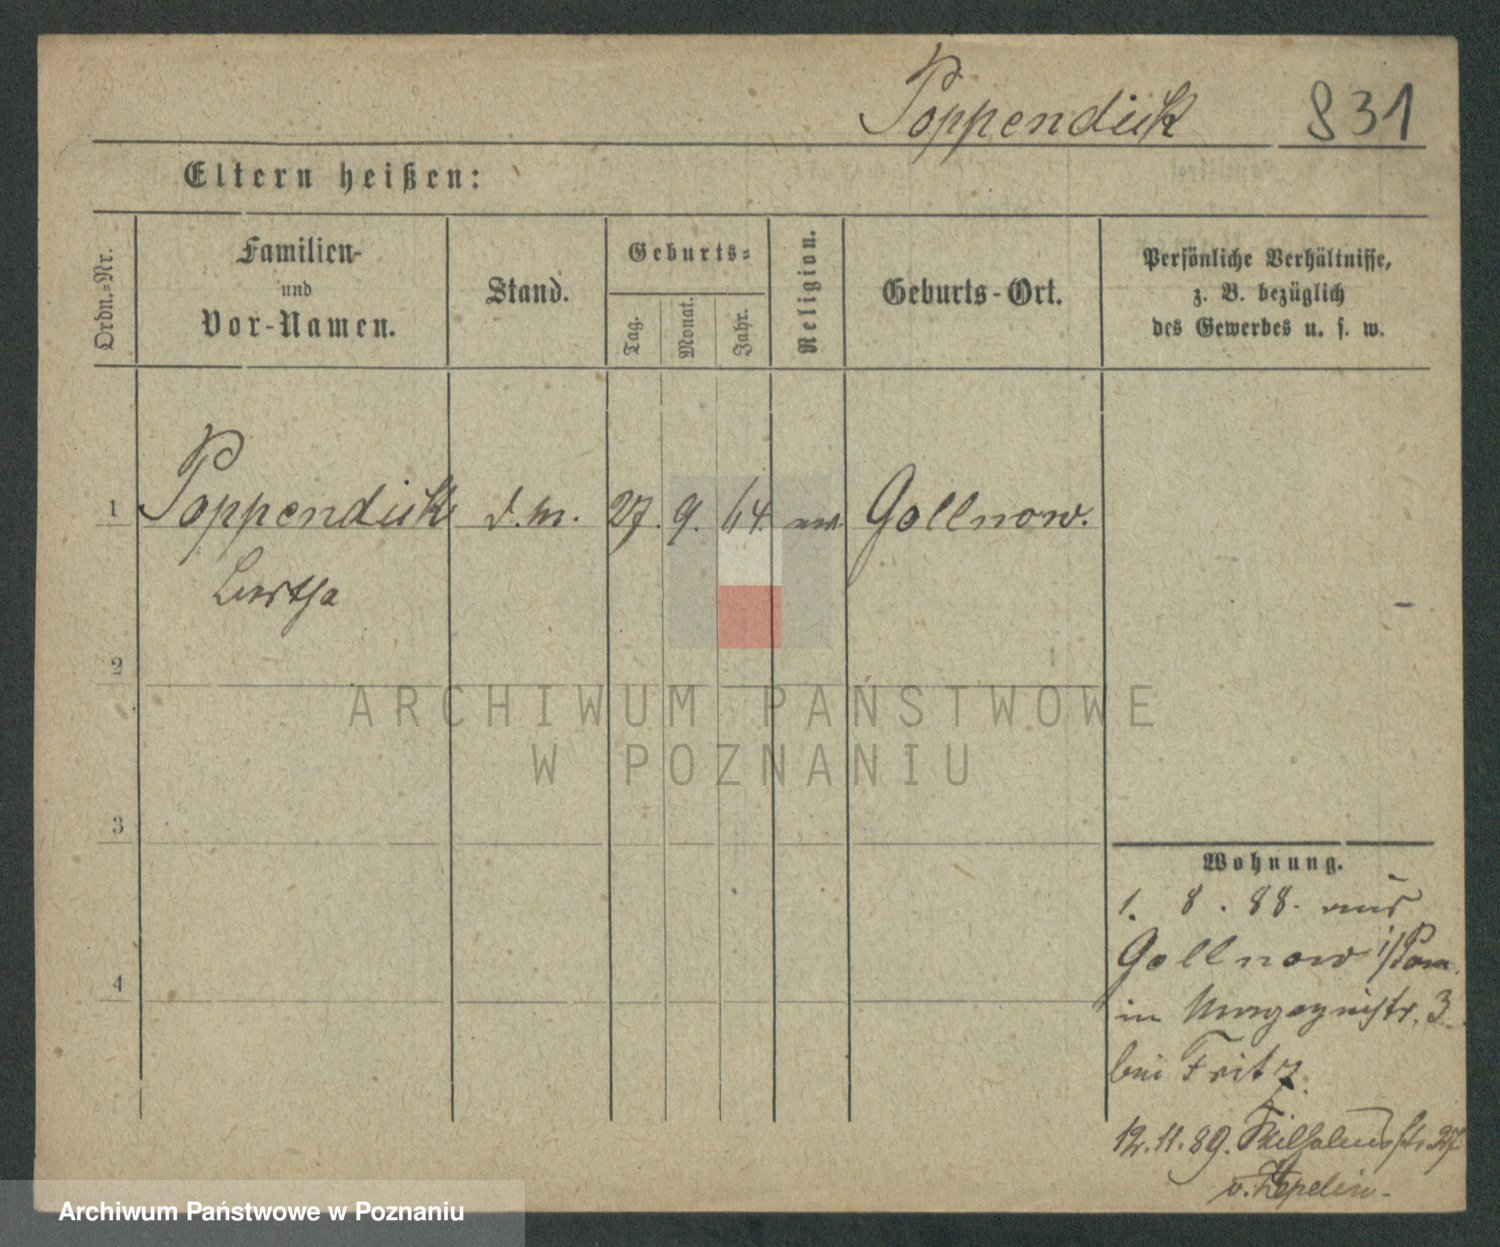 Poppendick 831
Eltern heißen:
Ordn.-Nr.
Familien-
und
Vor-Namen.
Stand.
Geburts-
Tag.
Monat.
Jahr.
Religion.
Geburts-Ort.
Persönliche Verhältnisse,
z. B. bezüglich
des Gewerbes u. s. w.
1 Poppendick d. m. 27. 9. 64. ev. Gollnow.
Bertha
2
ARCHIWUM PAŃSTWOWE
W POZNANIU
3
4
Wohnung.
1. 8. 88. aus
Gollnow i/Pom.
in Magazinstr. 3
bei Fritz.
12. 11. 89. Wilhelmstr. 27
v. Zepelin.
Archiwum Państwowe w Poznaniu